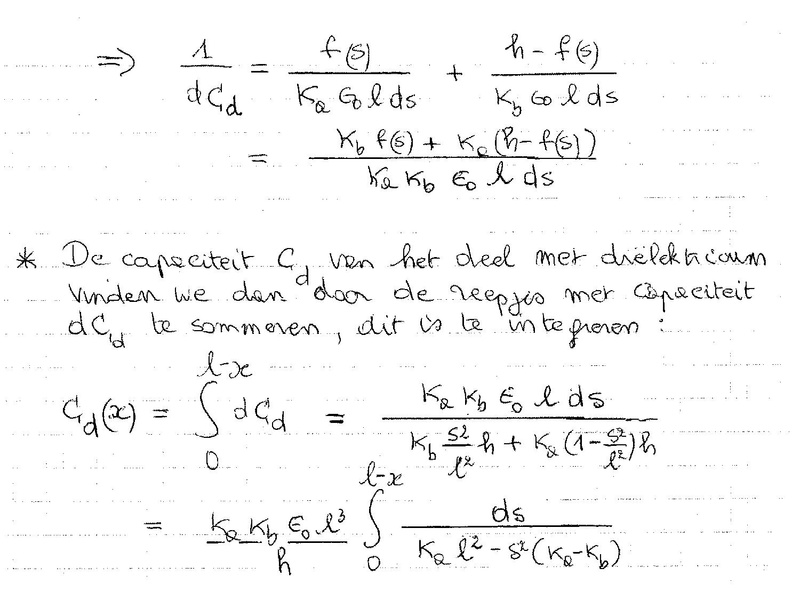 ⇒ 1/dC_d = f(s)/(K_a ε₀ l ds) + (h − f(s))/(K_b ε₀ l ds)
= (K_b f(s) + K_a (h − f(s)))/(K_a K_b ε₀ l ds)
* De capaciteit C_d van het deel met diëlektricum
vinden we dan door de reepjes met capaciteit
dC_d te sommeren, dit is te integreren :
C_d(x) = ∫₀^{l−x} dC_d = (K_a K_b ε₀ l ds)/(K_b (s²/l²) h + K_a (1 − s²/l²) h)
= (K_a K_b ε₀ l³)/h ∫₀^{l−x} ds/(K_a l² − s² (K_a − K_b))